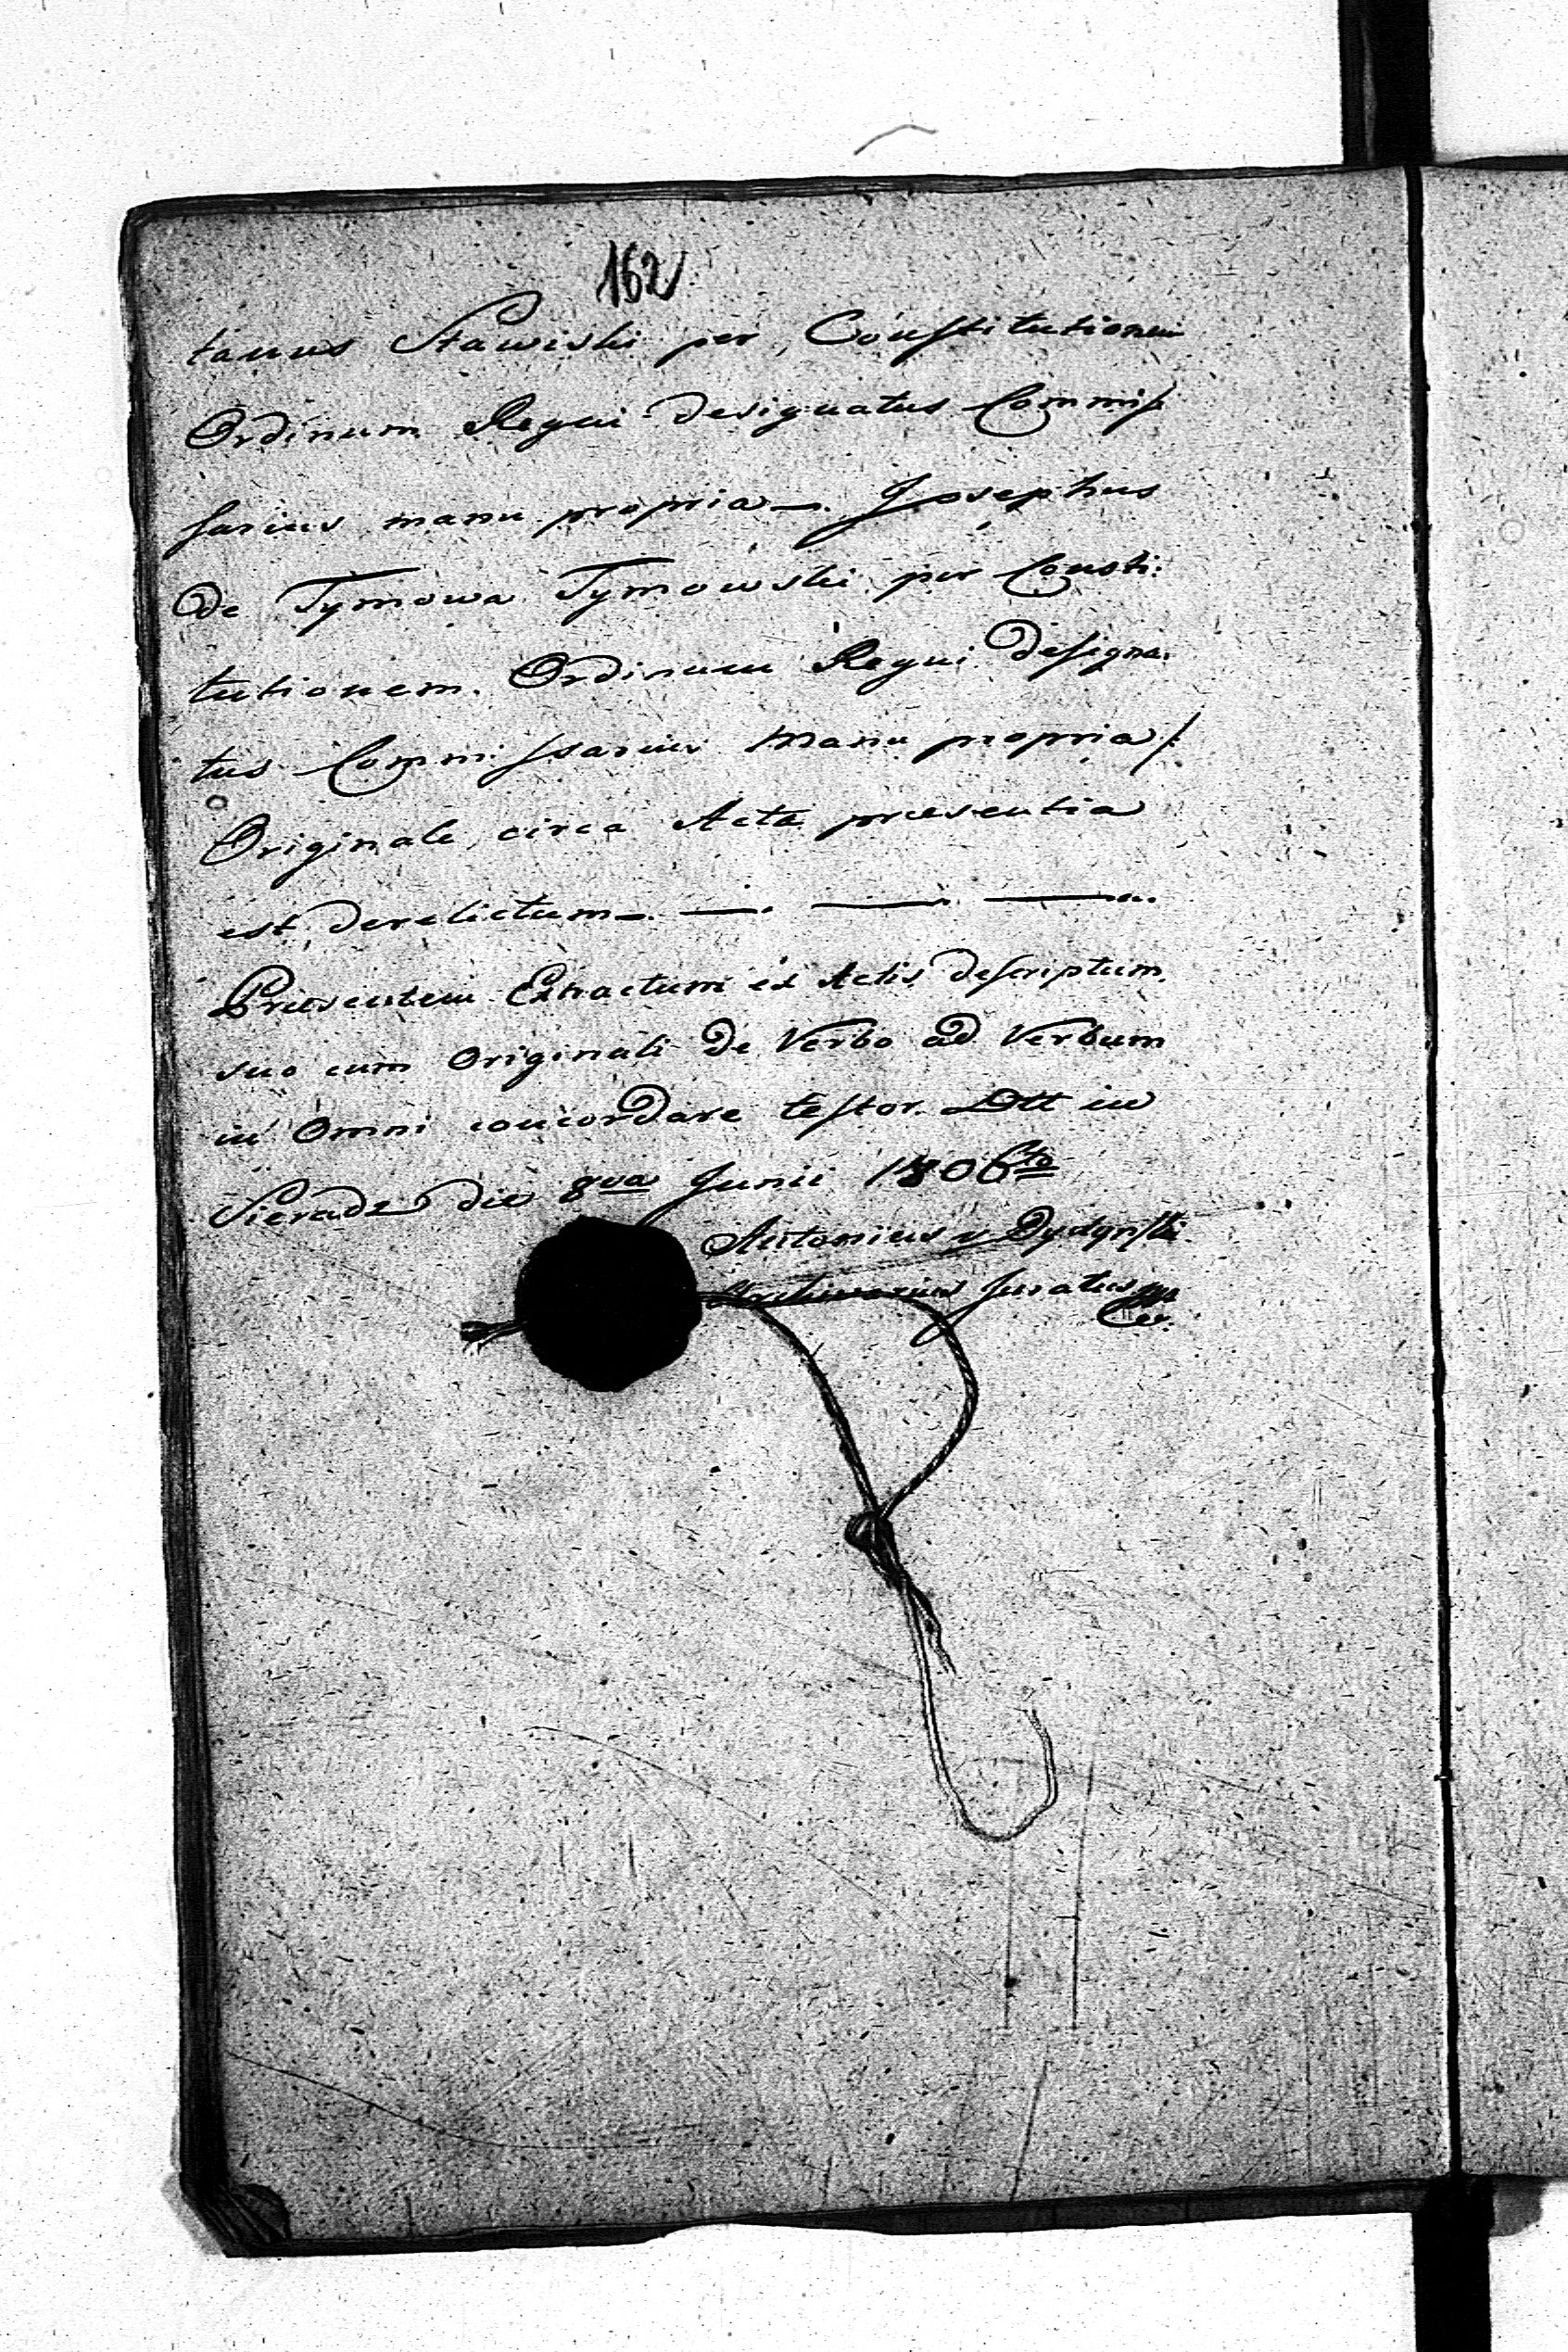 162
tanus Stawiski per Constitutionem
Ordinum Regni designatus Commis
sarius manu propria. Josephus
de Tymowa Tymowski per Consti:
tutionem Ordinum Regni designa.
tus Commissarius manu propria/.
Originale circa Acta praesentia
est derelictum
Praesentem Extractum ex Actis descriptum
suo cum Originali de Verbo ad Verbum
in Omni concordare testor. Dtt in
Sieradz die 8va Junii 1806to
Antonius v
Archivarius Juratus